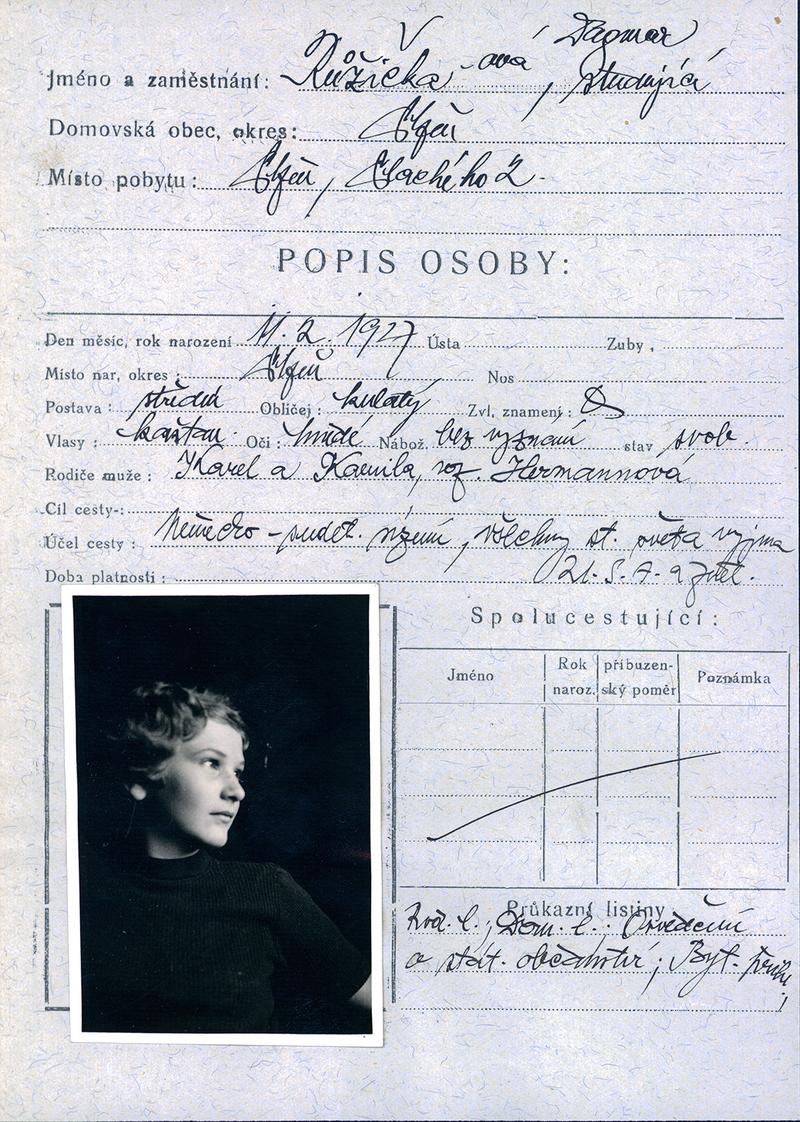 Jméno a zaměstnání: Růžička -ová Dagmar, studující
Domovská obec, okres: Plzeň
Místo pobytu: Plzeň, Plachého 2.
POPIS OSOBY:
Den měsíc, rok narození 11. 2. 1927 Ústa Zuby .
Místo nar, okres: Plzeň Nos
Postava: střední Obličej: kulatý Zvl, znamení:
Vlasy: kaštan. Oči: hnědé Nábož. bez vyznání stav svob.
Rodiče muže: Karel a Kamila, roz. Hermannová
Cíl cesty-:
Účel cesty: Německo - sudet. území, všechny st. světa vyjma
Doba platnosti:
Spolucestující:
Jméno Rok naroz. příbuzenský poměr Poznámka
Průkazní listiny:
Rod. l.; Dom. l.; Osvědčení
o stát. občanství; Byt.